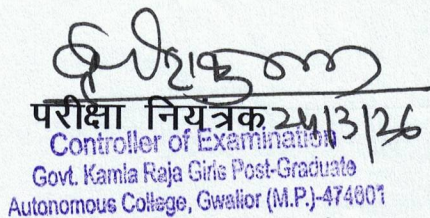 परीक्षा नियंत्रक 24/3/26
Controller of Examination
Govt. Kamla Raja Girls Post-Graduate
Autonomous College, Gwalior (M.P.)-474001